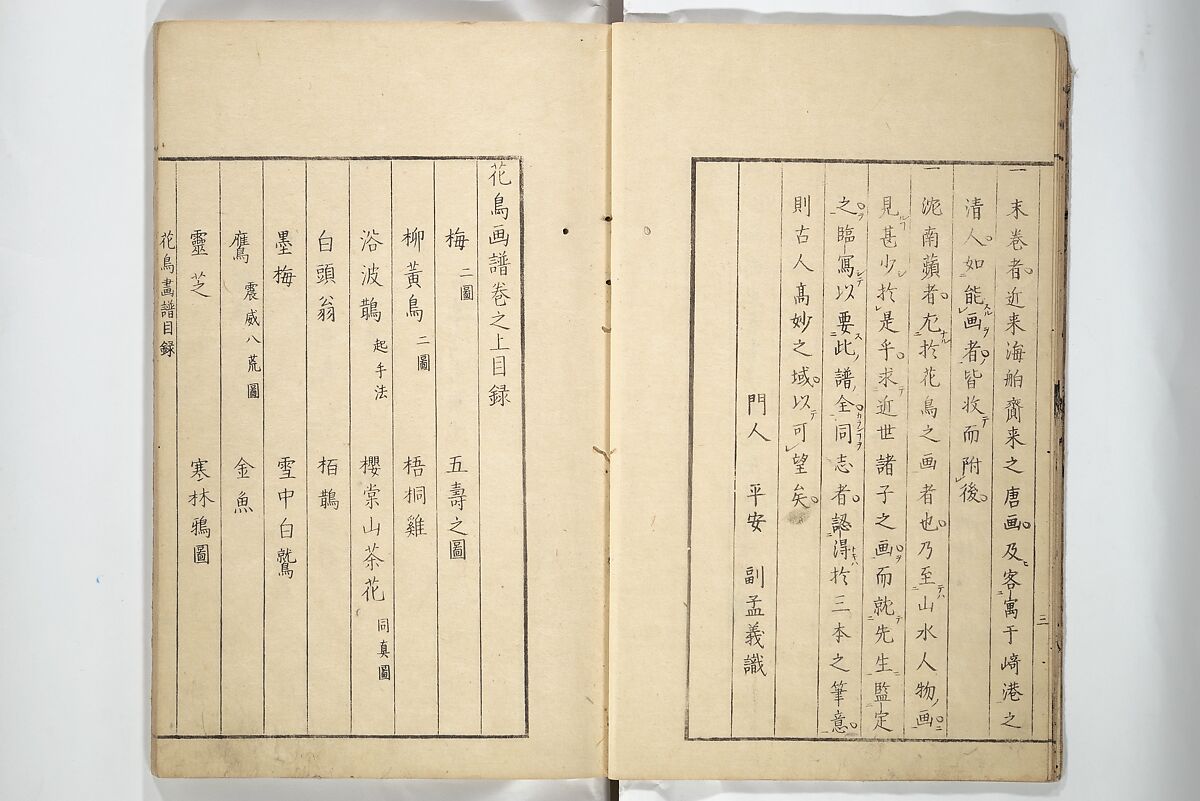 一 末卷者近来海舶齎来之唐画及客寓于崎港之
清人如能画者皆收而附後
一 沈南蘋者尤於花鳥之画者也乃至山水人物画
見甚少於是乎求近世諸子之画而就先生監定
之臨寫以要此譜全同志者認得於三本之筆意
則古人髙妙之域以可望矣
門人 平安 副孟義識
三
花鳥画譜巻之上目録
梅 二圖 五壽之圖
柳黃鳥 二圖 梧桐雞
浴波鵲 起手法 櫻棠山茶花 同真圖
白頭翁 栢鵲
墨梅 雪中白鷲
鷹 震威八荒圖 金魚
靈芝 寒林鴉圖
花鳥畫譜目録